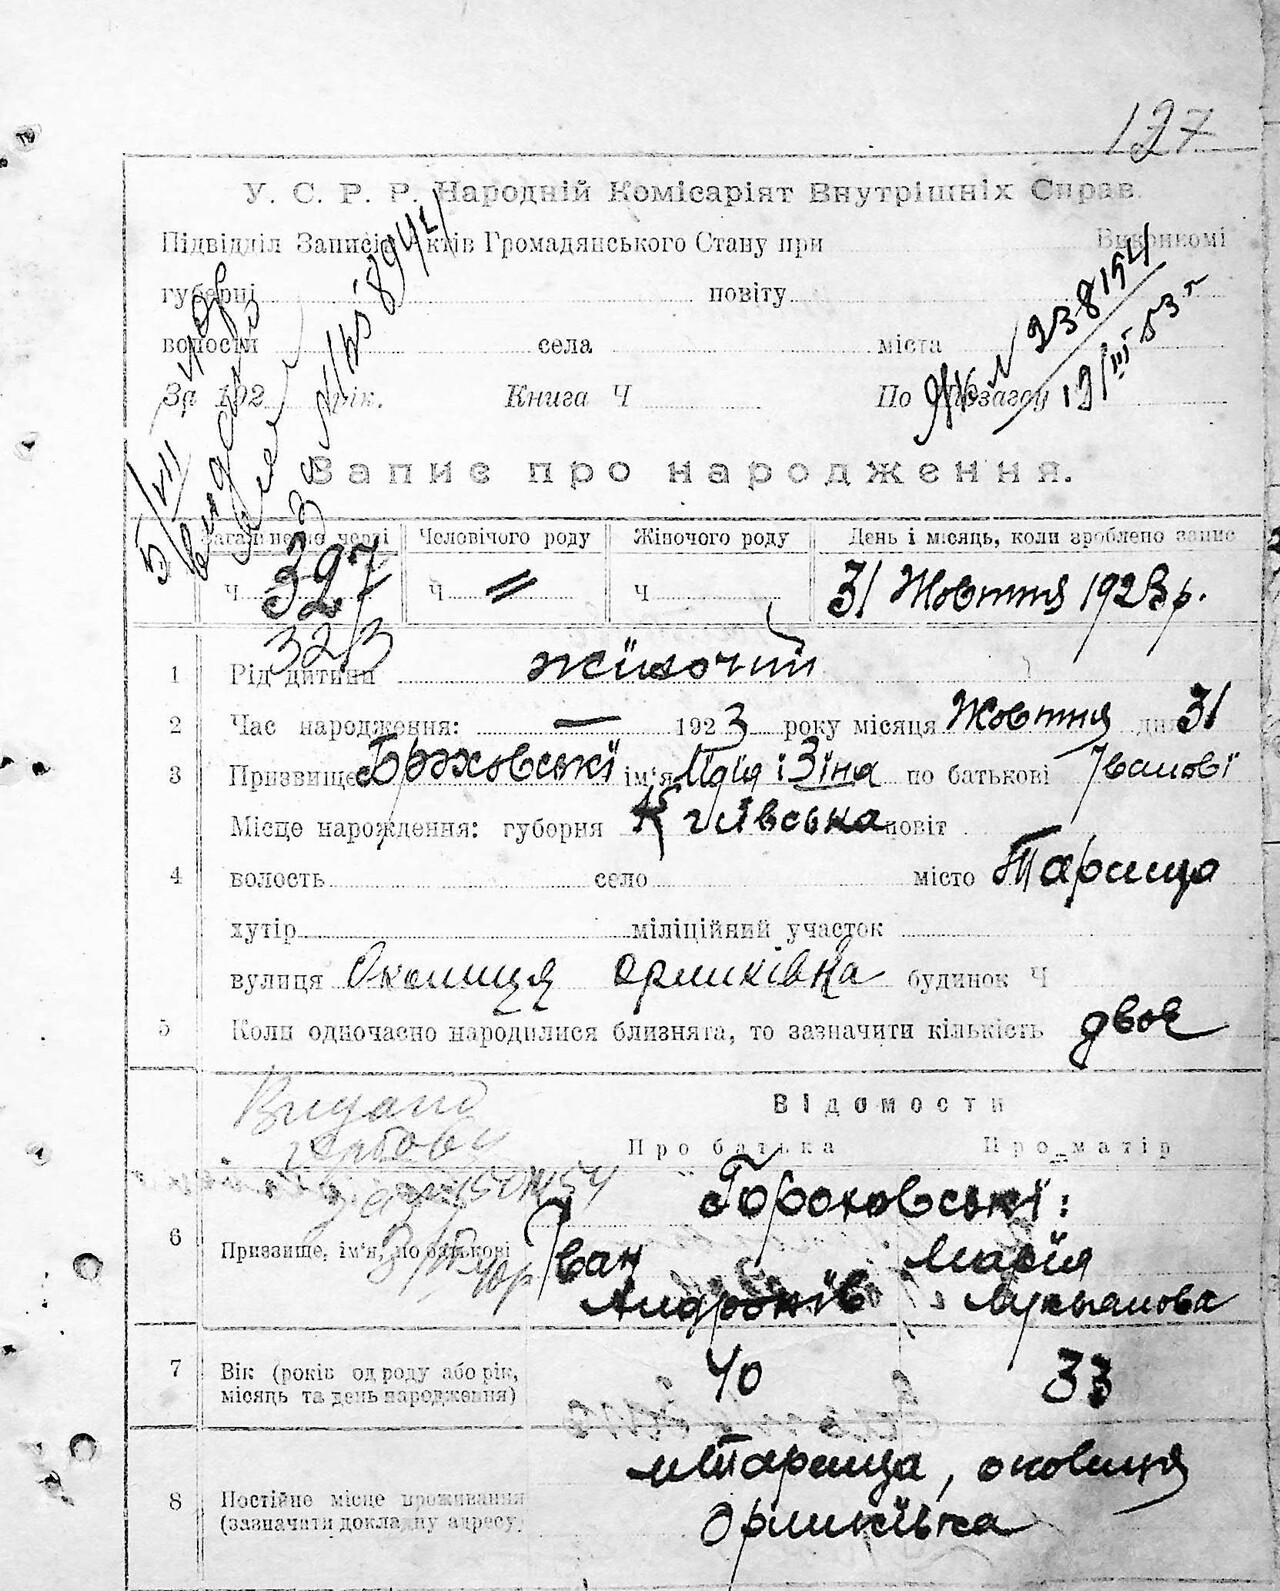 127
У. С. Р. Р. Народній Комісаріят Внутрішніх Справ.
Підвідділ Записів Актів Громадянського Стану при Виконкомі
губерні повіту
волости села міста
За 192 рік. Книга Ч По
№ 238154
12/III 53 г
5/VII
Запис про народження.
Загальної черги Человічого роду Жіночого роду День і місяць, коли зроблено запис
Ч 327 Ч " Ч 31 Жовтня 1923 р.
32/3
1 Рід дитини жіночий
2 Час народження: — 1923 року місяця Жовтня дня 31
3 Призвище ім'я Лідія і Зіна по батькові Іванові
Місце народження: губерня Київська повіт
4 волость село місто Тараща
хутір міліційний участок
вулиця Околиця Орликівка будинок Ч
5 Коли одночасно народилися близнята, то зазначити кількість двоє
Відомости
Видано
Про батька Про матір
Гороховські:
6 Призвище, ім'я, по батькові Іван Марія
Андронів Лукьянова
7 Вік (років од роду або рік, 40 33
місяць та день народження)
м Тараща, околиця
8 Постійне місце проживання Орликівка
(зазначати докладну адресу)